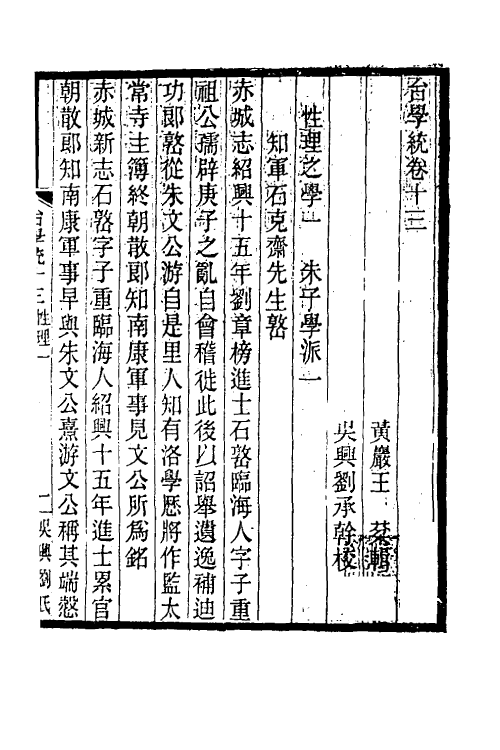 台學統卷十三
黃巖王　棻輯
吳興劉承幹校
性理之學一　朱子學派一
知軍石克齋先生𡼖
赤城志紹興十五年劉章榜進士石𡼖臨海人字子重
祖公孺辟庚子之亂自會稽徙此後以詔舉遺逸補迪
功郎𡼖從朱文公游自是里人知有洛學歷將作監太
常寺主簿終朝散郎知南康軍事見文公所為銘
赤城新志石𡼖字子重臨海人紹興十五年進士累官
朝散郎知南康軍事早與朱文公熹游文公稱其端慤
台學統十三　性理一
一　吳興劉氏